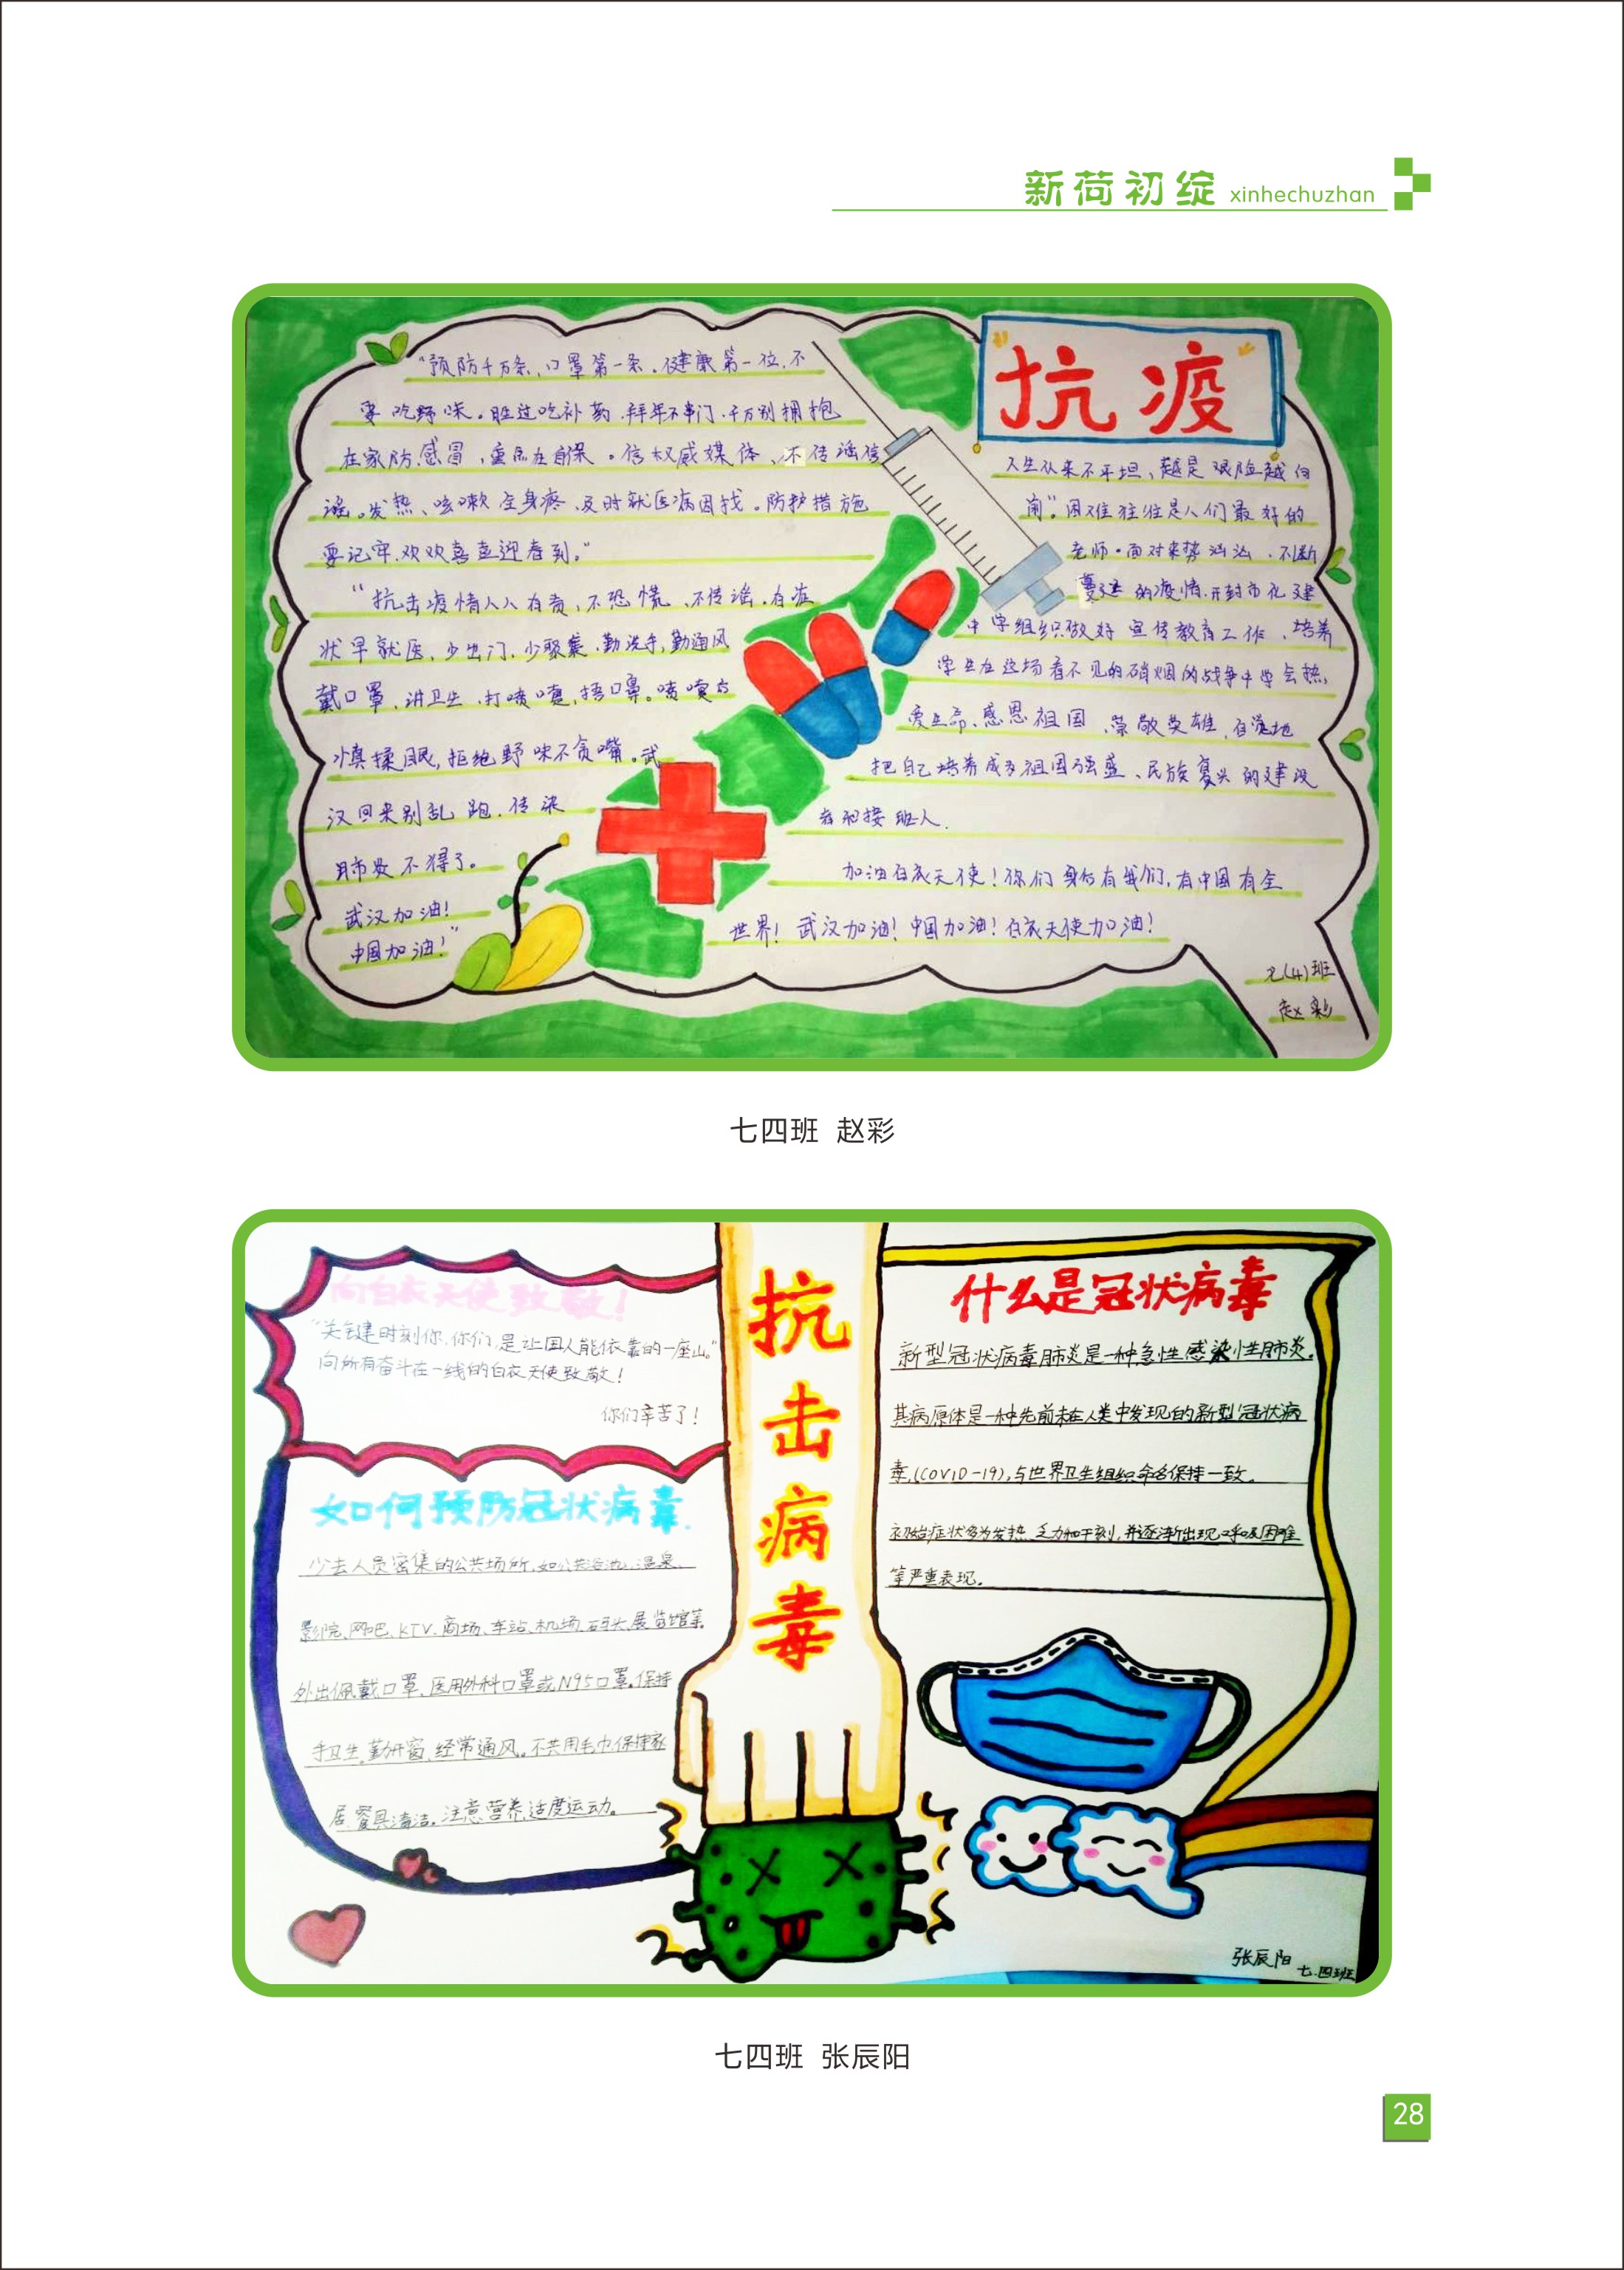 新荷初绽 xinhechuzhan
抗疫
“预防千万条,口罩第一条.健康第一位,不
要吃野味。胜过吃补药.拜年不串门.千万别拥抱
在家防感冒,重点在自保。信权威媒体、不传谣信
谣。发热、咳嗽全身疼、及时就医病因找。防护措施
要记牢.欢欢喜喜迎春到。”
“抗击疫情人人有责,不恐慌、不传谣.有症
状早就医、少出门.少聚集.勤洗手,勤通风
戴口罩、讲卫生.打喷嚏,捂口鼻。喷嚏后
慎揉眼,拒绝野味不贪嘴。武
汉回来别乱跑.传染
肺炎不得了。
武汉加油!
中国加油!”
人生从来不平坦,越是艰险越向
前”.困难往往是人们最好的
老师。面对来势汹汹.不断
蔓延的疫情.开封市化建
中学组织做好宣传教育工作、培养
学生在这场看不见的硝烟的战争中学会热,
爱生命、感恩祖国、崇敬英雄,自觉地
把自己培养成为祖国强盛、民族复兴的建设
者和接班人.
加油白衣天使!你们身后有我们,有中国有全
世界!武汉加油!中国加油!白衣天使加油!
七(4)班
赵彩
七四班 赵彩
向白衣天使致敬!
“关键时刻你,你们,是让国人能依靠的一座山。”
向所有奋斗在一线的白衣天使致敬!
你们辛苦了!
如何预防冠状病毒.
少去人员密集的公共场所,如公共浴池、温泉、
影院、网吧、KTV、商场、车站、机场、码头、展览馆等.
外出佩戴口罩、医用外科口罩或N95口罩.保持
手卫生.勤开窗,经常通风。不共用毛巾保持家
居、餐具清洁。注意营养,适度运动。
抗
击
病
毒
什么是冠状病毒
新型冠状病毒肺炎是一种急性感染性肺炎.
其病原体是一种先前未在人类中发现的新型冠状病
毒,(COVID-19),与世界卫生组织命名保持一致.
初始症状多为发热、乏力和干刻,并逐渐出现呼吸困难
等严重表现.
张辰阳
七.四班
七四班 张辰阳
28